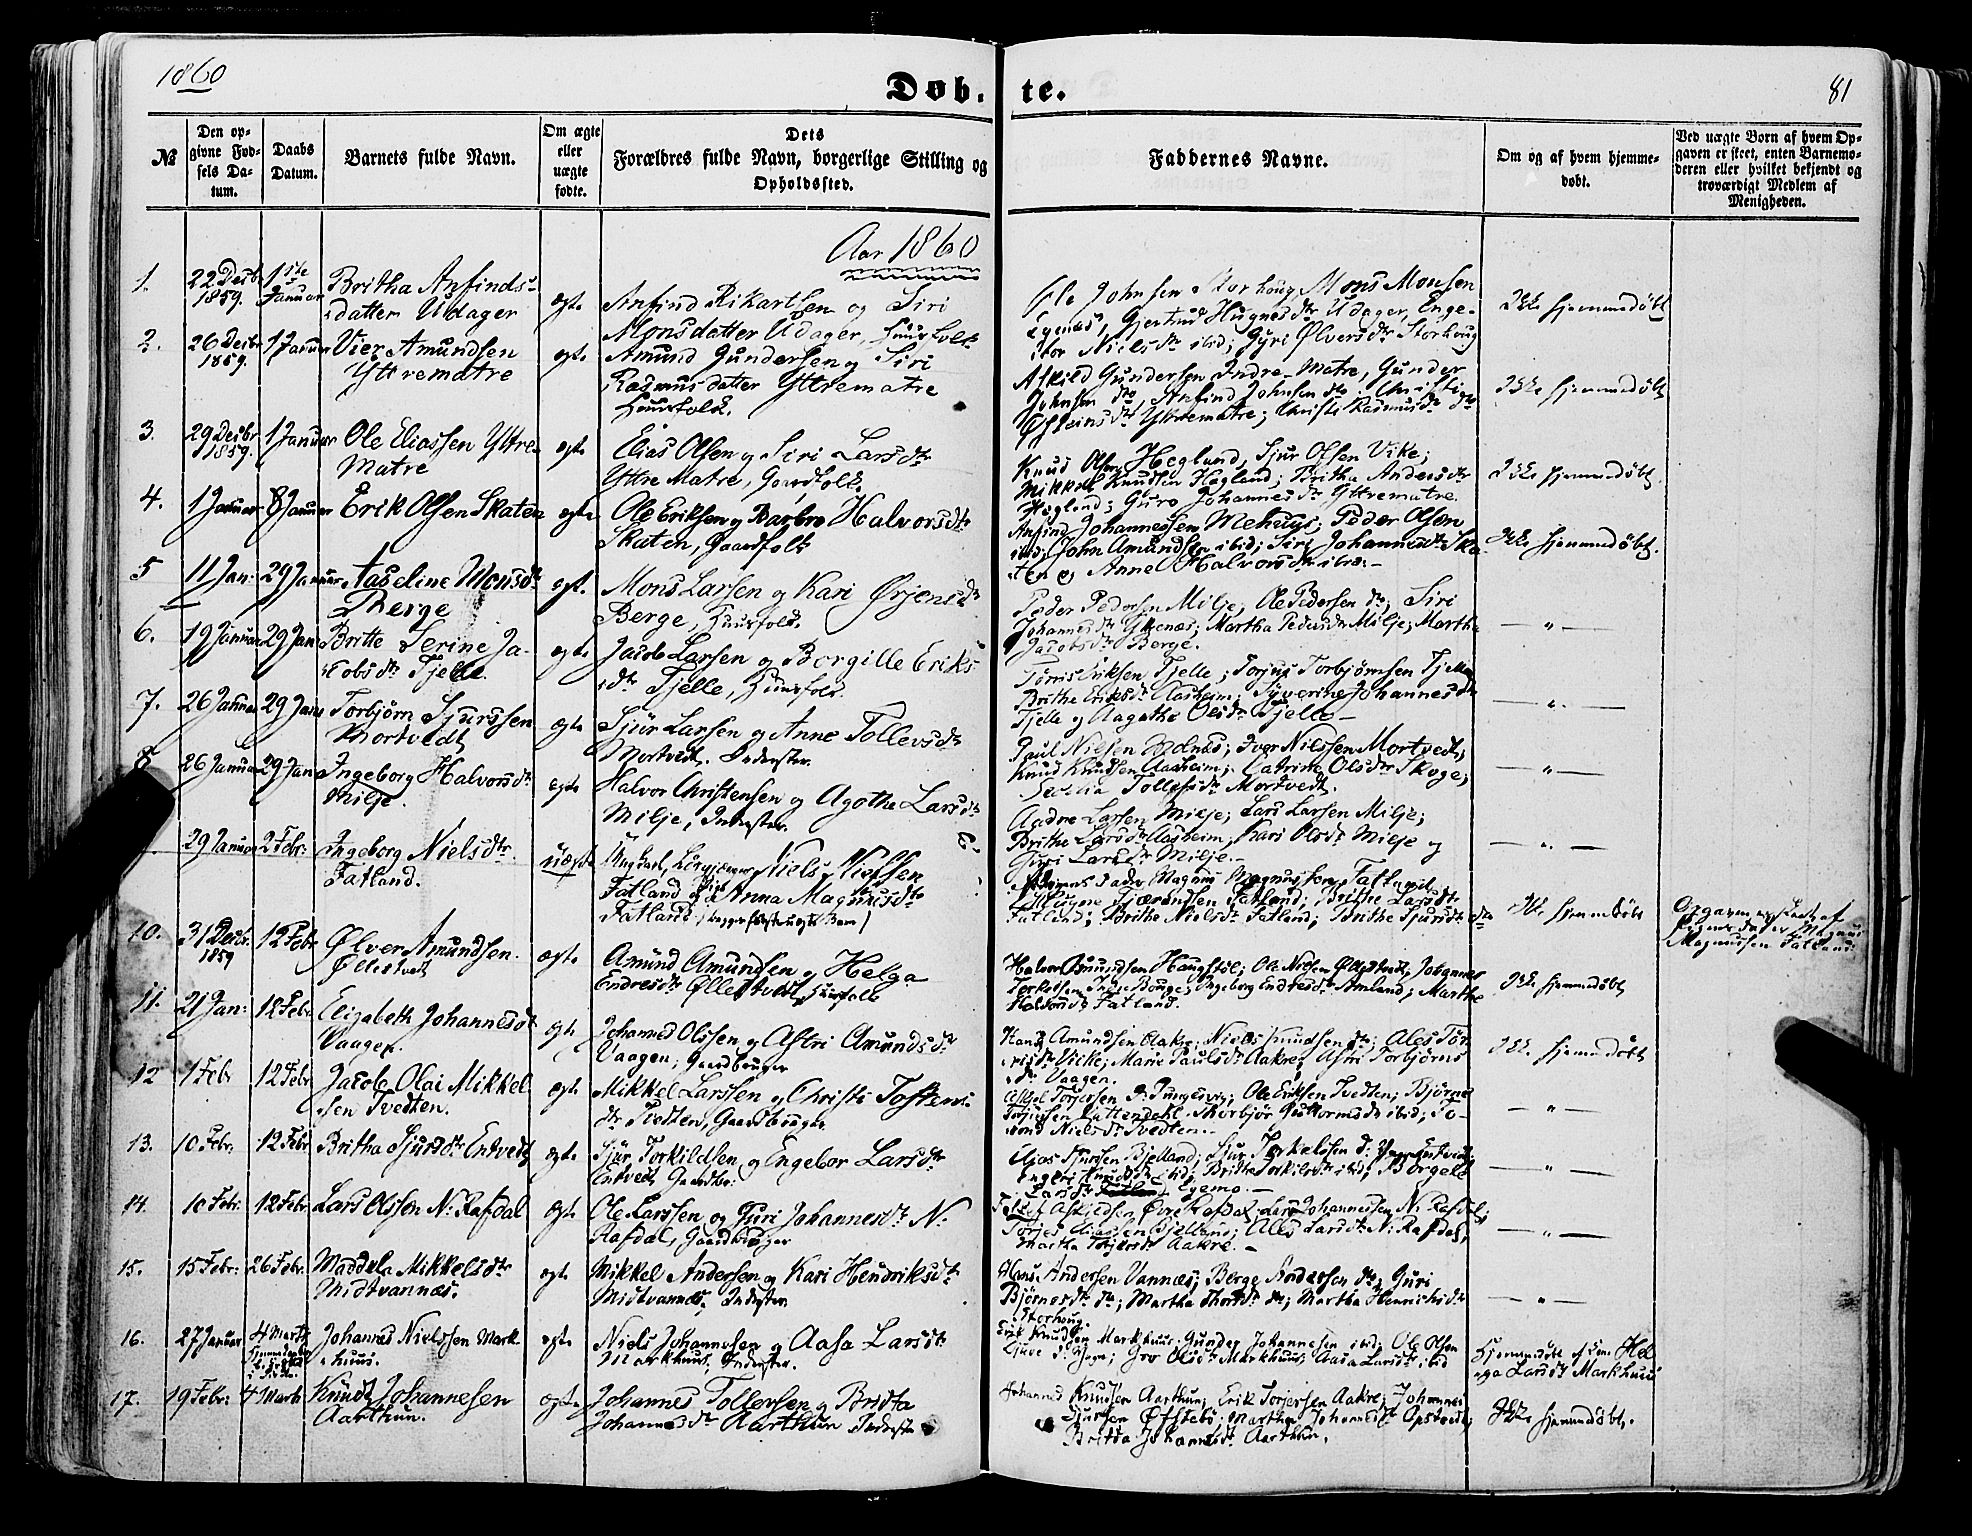 1860
Døb-
te.
81
№
Den opgivne Fødsels Datum.
Daabs Datum.
Barnets fulde Navn.
Om ægte eller uægte fødte.
Dets Forældres fulde Navn, borgerlige Stilling og Opholdssted.
Faddernes Navne.
Om og af hvem hjemmedøbt.
Ved uægte Børn af hvem Opgaven er skeet, enten Barnemoderen eller hvilket bekjendt og troværdigt Medlem af Menigheden.
Aar 1860
1. 22 Decbr 1859. 1ste Januar Britha Anfinds-
datter Udager egte Anfind Rikartsen og Siri
Monsdatter Udager, Huusfolk
Ole Johnsen Storhoug, Mons Monsen
Egenæs, Gjertrud Hugnesdtr Udager, Enge-
Nielsdtr ibid; Gyri Ølversdtr Storhoug
Ikke hjemmedøbt
2. 26 Decbr 1859. 1 Januar Vier Amundsen
Yttrematre egte Amund Gundersen og Siri
Rasmusdatter Yttrematre
Huusfolk.
Askild Gundersen Indre-Matre, Gunder
Johnsen do, Anfind Johnsen do, Christi
Østeinsdtr Yttrematre; Christi Rasmusdtr do
Ikke hjemmedøbt
3. 29 Decbr 1859. 1 Januar Ole Eliassen Yttre-
Matre egte Elias Olsen og Siri Larsdtr
Yttre Matre, Gaardfolk.
Knud Olsen Hegland, Sjur Olsen Vike;
Mikkel Knudsen Hegland; Britha Andersdtr
Hegland; Guro Johannesdtr Yttrematre.
Ikke hjemmedøbt.
4. 1 Januar 8 Januar Erik Olsen Skaten egte Ole Eriksen og Barbro Halvorsdtr
Skaten, Gaardfolk
Anfind Johannessen Mehuus; Peder Olsen
ibid; John Amundsen ibid; Siri Johannesdtr Ska-
ten og Anne Halvorsdtr ibid.
Ikke hjemmedøbt.
5 11 Jan: 29 Januar Aaseline Monsdtr
Berge egt. Mons Larsen og Kari Ørjensdtr
Berge, Huusfolk.
Peder Pedersen Milje, Ole Pedersen do; Siri
Johannesdtr Egenæs; Martha Pedersdtr Milje; Martha
Jacobsdtr Berge.
— " —
6. 19 Januar 29 Jan Britte Serine Ja-
cobsdtr Tjelle. egte Jacob Larsen og Borgille Eriks-
dtr Tjelle, Huusfolk.
Tørris Eriksen Tjelle; Torjus Torbjørnsen Tjelle
Brithe Eriksdtr Aasheim; Syverine Johannesdtr
Tjelle og Aagathe Olsdtr Tjelle
— " —
7. 26 Januar 29 Jan Torbjørn Sjurssen
Mortvedt egte Sjur Larsen og Anne Tollevsdtr
Mortvedt. Inderster.
Paul Nielsen Holnæs; Iver Nilssen Mortvedt;
Knud Knudsen Aasheim; Catrine Olsdtr Skoge;
Tollefsdtr Mortvedt.
— " —
8 26 Januar 29 Jan Ingeborg Halvorsdtr
Milje. egte Halvor Christensen og Agothe Larsdtr
Milje, Inderster.
Aadne Larsen Milje; Lars Larsen Milje;
Brithe Larsdtr Aasheim; Kari Olsdtr Milje og
Gyri Larsdtr Milje.
— " —
29 Januar 2 Febr: Ingeborg Nielsdtr
Fatland. uægte Ungkarl, Niels Nielsen
Fatland og Pige Anna Magnusdtr
Fatland
Magnus Magnussen Fatland;
Fatland; Brithe Larsdtr
Fatland; Brithe Nielsdtr Fatland; Brithe Sjursdtr do
Ikke hjemmedøbt
Opgaven er skeet af
Pigens Fader Magnus
Magnussen Fatland
10. 31 Decbr. 1859 12 Febr. Ølver Amundsen
Øllestvedt egte Amund Amundsen og Helga
Endresdtr Øllestvedt Huusfolk
Halvor Amundsen Haugstøl; Ole Nilsen Øllestvedt; Johannes
Torkelsen Indre Bouge; Ingeborg Endresdtr Amland; Martha
Halvorsdtr Fatland.
Ikke hjemmedøbt
11. 21 Jan: 12 Febr. Elizabeth Johannesdtr
Vaagen. egte Johannes Olssen og Astri Amundsdtr
Vaagen; Gaardbruger
Hans Amundsen Aakre; Niels Knudsen do; Ales Tør-
risdtr Vikke; Marie Paulsdtr Aakre; Astri Torbjørns-
dtr Vaagen.
Ikke hjemmedøbt
12 1 Febr 12 Febr Jacob Olai Mikkel-
sen Tvedten. egte Mikkel Larssen og Christi Tostens-
dtr Tvedten, Gaardbruger
Mikkel Torjersen Ole Eriksen Tvedten; Bjørne
Torjussen Lattendahl; Thorbjør Guttormsdtr ibid; To-
Nielsdtr Tvedten.
— " —
13. 10 Febr: 12 Febr Britha Sjursdtr Entvedt egte Sjur Torkildsen og Engebor Larsdtr
Entvedt Gaardbr:
Elias Sjurssen Bjelland; Sjur Torkelssen
Knudsdtr ibid; Britha Torkilsdtr ibid; Borgele
Larsdtr Egemo.
— " —
14. 10 Febr: 12 Febr. Lars Olssen N: Rafdal egte Ole Larssen og Guri Johannesdtr N:
Rafdal, Gaardbruger
Askildsen Øvre Rafdal; Lars Johannessen N: Rafdal;
Torjes Eliassen Bjelland; Ales Larsdtr N: Rafdal;
Martha Torjersdtr Aakre.
— " —
15. 15 Febr: 26 Febr. Maddela Mikkelsdtr
Midtvannæs. egte Mikkel Andersen og Kari Hendriksdtr
Midtvannæs, Inderster
Hans Andersen Vannæs; Berge Andersen do; Guri
Bjørnesdtr do; Martha Thorsdtr do; Martha Henrichsdtr
Storhoug.
— " —
16. 27 Januar 4 Marts Johannes Nielssen Mark-
huus. egte Niels Johannesen og Aasa Larsdtr
Markhuus, Inderster.
Erik Knudsen Markhuus; Gunder Johannesen ibid; Ole Olsen
Gro Olsdtr Markhuus; Aasa Larsdtr ibid
Hjemmedøbt af Hel-
ga Larsdtr Markhuus
17. 19 Febr: 4 Marts Knudt Johannesen
Aarthun. egte Johannes Tollevsen og Bridta
Johannesdtr Aarthun Inderste
Johannes Knudsen Aarthun; Erik Torjersen Aakre; Johannes
Sjursen Øffstebø; Martha Johannesdtr Opstvedt;
Britda Johannesdtr Aarthun.
Ikke hjemmedøbt.